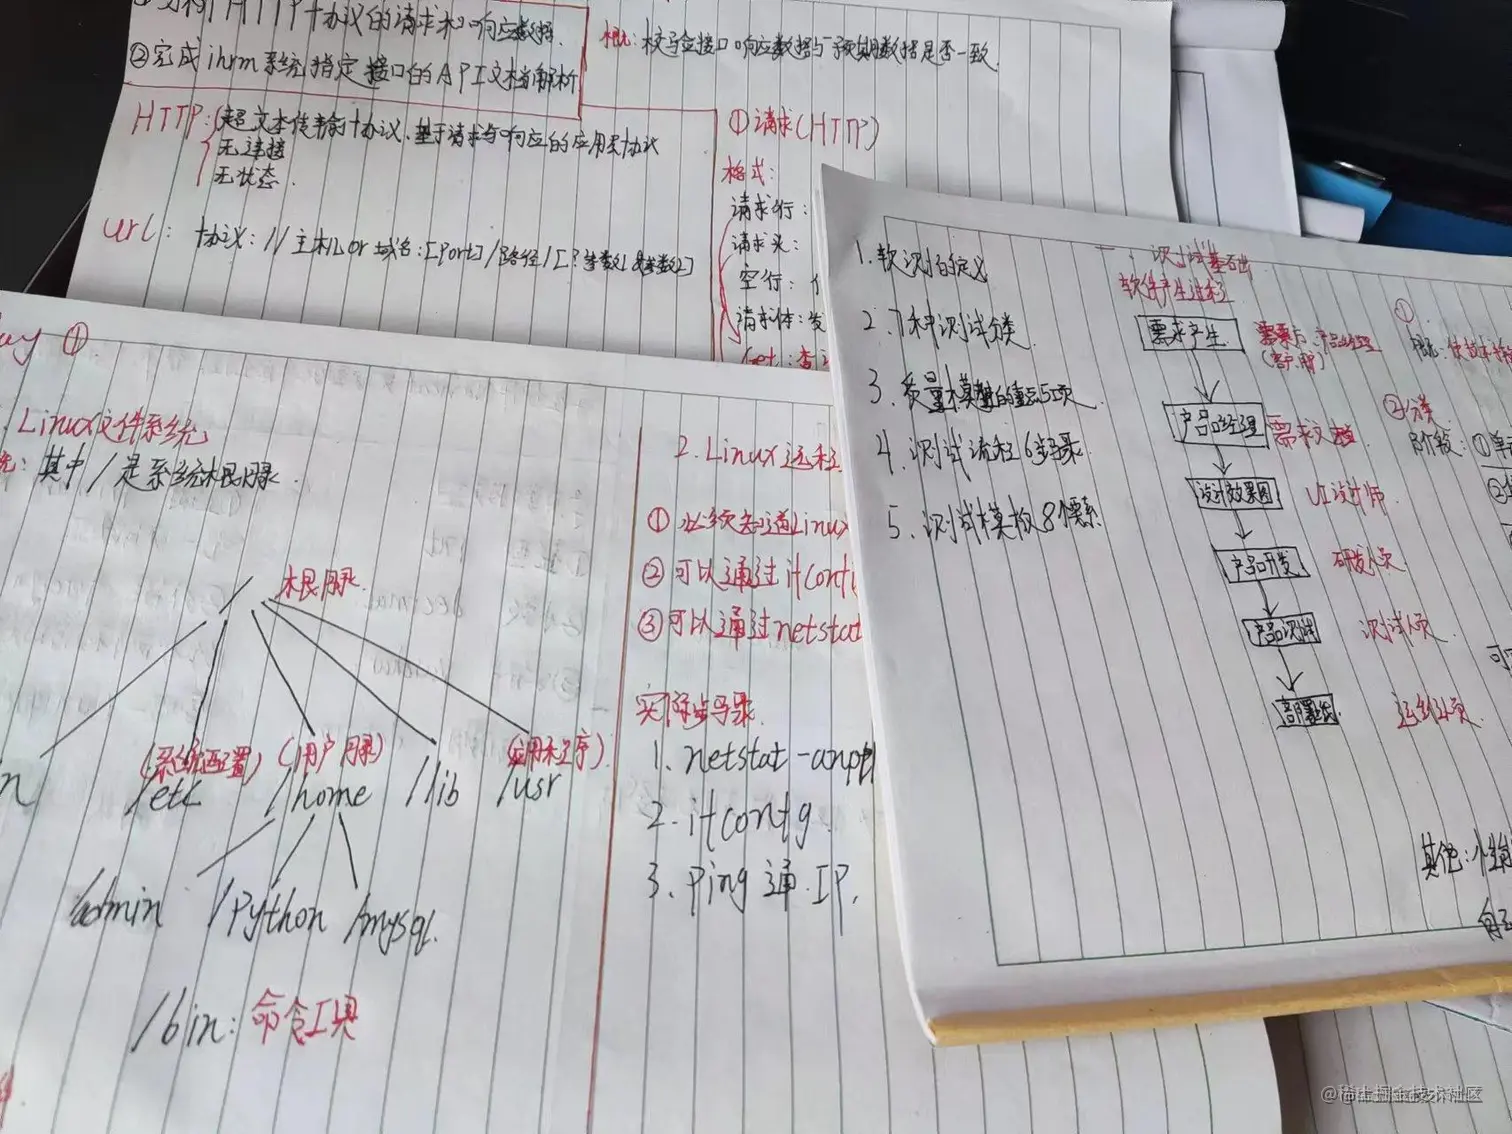 HTTP协议的请求和响应数据.
②完成ihrm系统指定接口的API文档解析
概: 校验接口响应数据与预期数据是否一致.
HTTP: 超文本传输协议、基于请求与响应的应用层协议
无连接
无状态.
url: 协议://主机or域名:[port]/路径/[?参数1&参数2]
①请求(HTTP)
格式:
请求行:
请求头:
空行:
请求体: 发
Get: 查
①
Linux文件系统
其中/是系统根目录.
/ 根目录.
(系统配置) (用户目录) (应用程序)
/etc /home /lib /usr
/admin /Python /mysql.
/bin: 命令工具
2. Linux远程
① 必须知道Linux
② 可以通过itconf
③ 可以通过netstat
实际步骤.
1. netstat -anpt
2. itcontg.
3. Ping 通.IP.
1. 软测的定义
2. 7种测试分类.
3. 质量模型的重点5项.
4. 测试流程6步骤.
5. 测试模板8个要素.
一 测试基础
软件产生过程
需求产生 需要 产品经理
产品经理 需求文档
设计效果图 UI设计师.
产品研发 研发人员
产品测试 测试人员.
部署上线
①
②分类
阶段: ①单
②
可
其他:
@稀土掘金技术社区